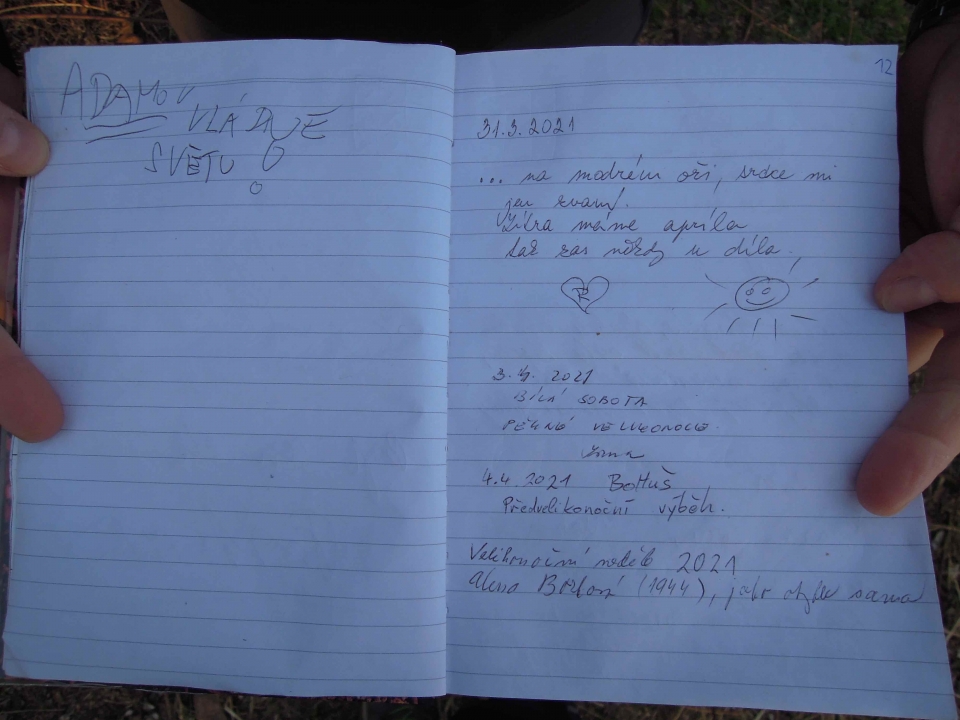 ADAMOV
VLÁDNE
SVĚTU
12
31.3.2021
... na modrém oři, srdce mi
jen
Zítra máme apríla
tak zas někdy u díla.
3. 4. 2021
BÍLÁ SOBOTA
PĚKNÉ VELIKONOCE
4.4.2021 BOHUŠ
Předvelikonoční výběh.
Velikonoční neděle 2021
Alena (1944), jako sama